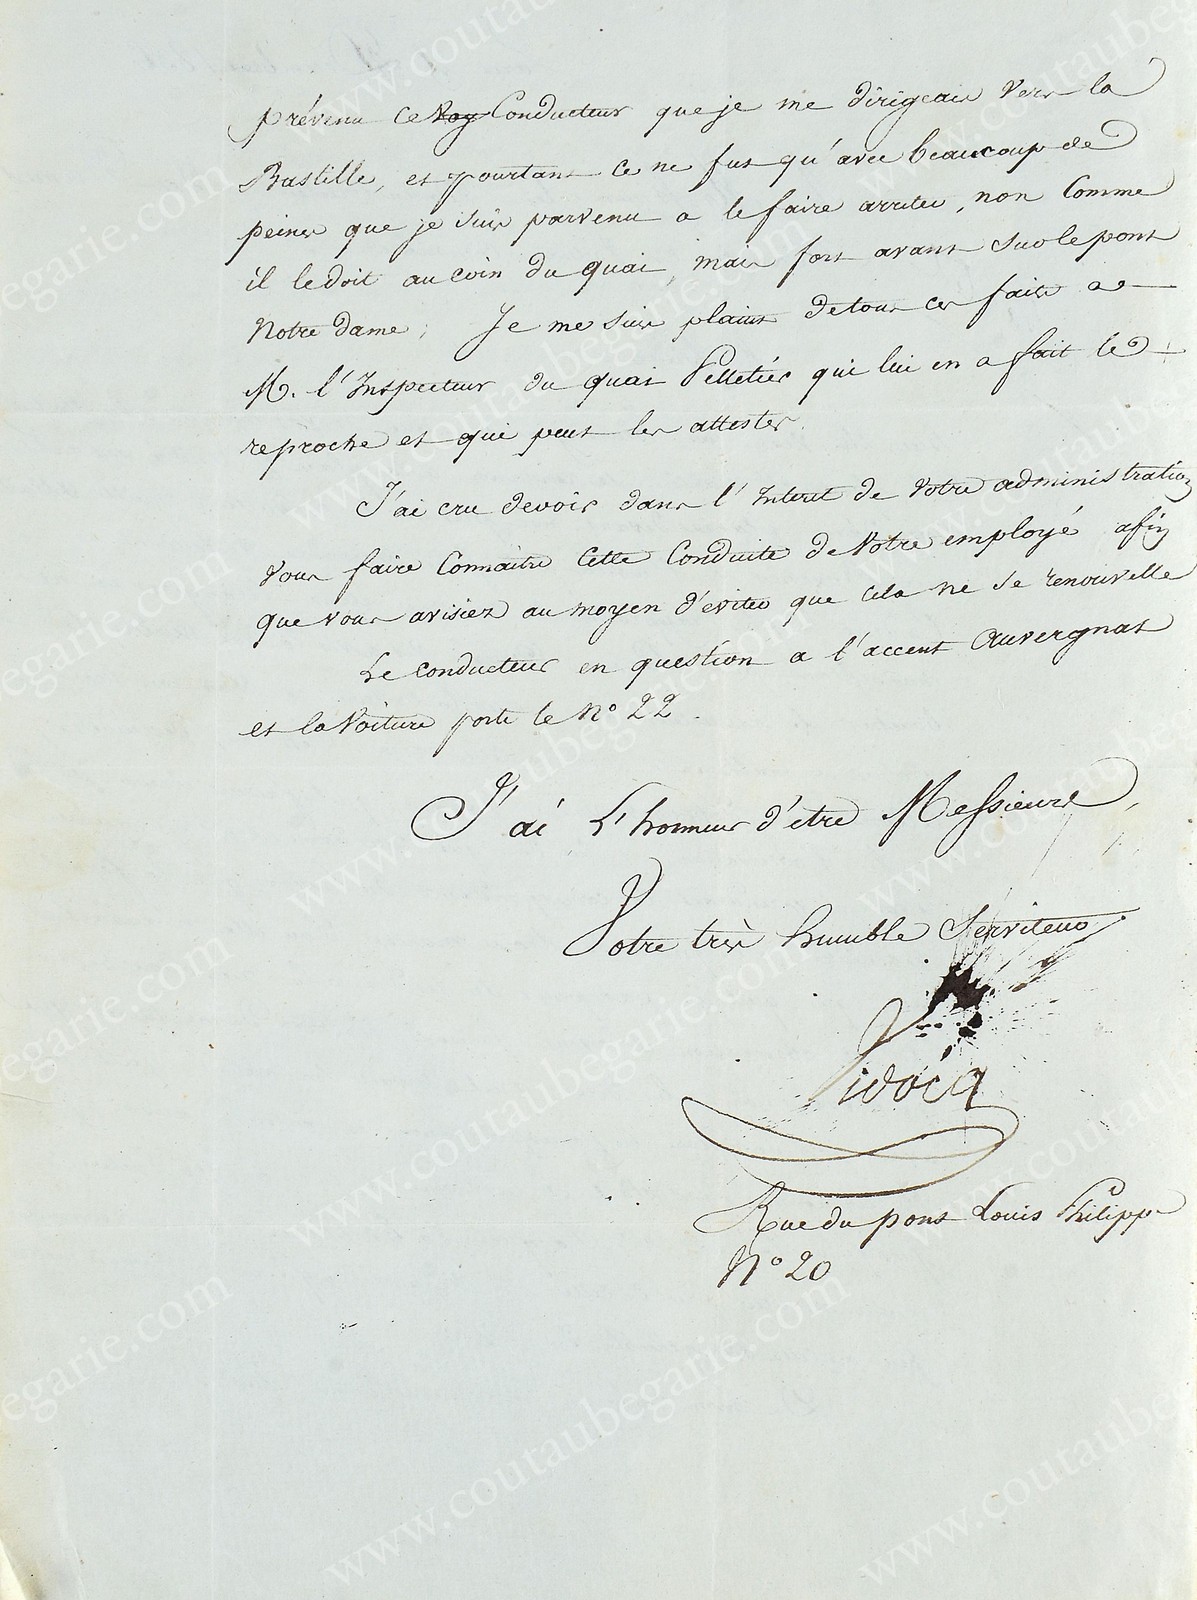 prévenu ce voy Conducteur que je me dirigeais vers la
Bastille, et pourtant ce ne fut qu'avec beaucoup de
peines que je suis parvenu a le faire arriter, non Comme
il le doit au coin du quai, mais fort avant sur le pont
Notre dame, Je me suis plaint de tous ces faits a
M. l'Inspecteur du quai Pelletier qui lui en a fait le
reproche et qui peut les attester.
J'ai cru devoir dans l'Interet de Votre administration
vous faire Connaitre Cette Conduite de Votre employé afin
que vous avisiez au moyen d'eviter que Cela ne se renouvelle
Le conducteur en question a l'accent Auvergnat
et la Voiture porte le N° 22.
J'ai L'honneur d'etre Messieurs,
Votre très humble Serviteur
Vidocq
Rue du pont Louis Philippe
N° 20
www.coutaubegarie.com